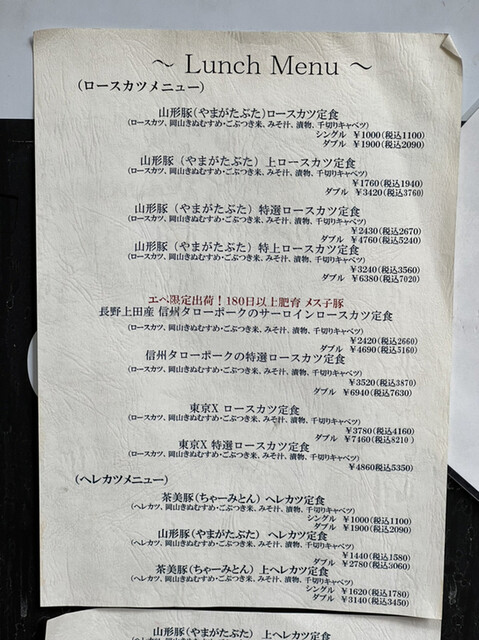 ~ Lunch Menu ~
(ロースカツメニュー)
山形豚(やまがたぶた)ロースカツ定食
(ロースカツ、岡山きぬむすめ・ごぶつき米、みそ汁、漬物、千切りキャベツ)
シングル ¥1000(税込1100)
ダブル ¥1900(税込2090)
山形豚 (やまがたぶた) 上ロースカツ定食
(ロースカツ、岡山きぬむすめ・ごぶつき米、みそ汁、漬物、千切りキャベツ)
¥1760(税込1940)
ダブル ¥3420(税込3760)
山形豚 (やまがたぶた) 特選ロースカツ定食
(ロースカツ、岡山きぬむすめ・ごぶつき米、みそ汁、漬物、千切りキャベツ)
¥2430(税込2670)
ダブル ¥4760(税込5240)
山形豚 (やまがたぶた) 特上ロースカツ定食
(ロースカツ、岡山きぬむすめ・ごぶつき米、みそ汁、漬物、千切りキャベツ)
¥3240(税込3560)
ダブル ¥6380(税込7020)
エペ限定出荷!180日以上肥育 メス子豚
長野上田産 信州タローポークのサーロインロースカツ定食
(ロースカツ、岡山きぬむすめ・ごぶつき米、みそ汁、漬物、千切りキャベツ)
¥2420(税込2660)
ダブル ¥4690(税込5160)
信州タローポークの特選ロースカツ定食
(ロースカツ、岡山きぬむすめ・ごぶつき米、みそ汁、漬物、千切りキャベツ)
¥3520(税込3870)
ダブル ¥6940(税込7630)
東京X ロースカツ定食
(ロースカツ、岡山きぬむすめ・ごぶつき米、みそ汁、漬物、千切りキャベツ)
¥3780(税込4160)
ダブル ¥7460(税込8210 )
東京X 特選ロースカツ定食
(ロースカツ、岡山きぬむすめ・ごぶつき米、みそ汁、漬物、千切りキャベツ)
¥4860税込5350)
(ヘレカツメニュー)
茶美豚(ちゃーみとん) ヘレカツ定食
(ヘレカツ、岡山きぬむすめ・ごぶつき米、みそ汁、漬物、千切りキャベツ)
シングル ¥1000(税込1100)
ダブル ¥1900(税込2090)
山形豚(やまがたぶた) ヘレカツ定食
(ヘレカツ、岡山きぬむすめ・ごぶつき米、みそ汁、漬物、千切りキャベツ)
¥1440(税込1580)
ダブル ¥2780(税込3060)
茶美豚(ちゃーみとん) 上ヘレカツ定食
(ヘレカツ、岡山きぬむすめ・ごぶつき米、みそ汁、漬物、千切りキャベツ)
シングル ¥1620(税込1780)
ダブル ¥3140(税込3450)
山形豚(やまがたぶた) 上ヘレカツ定食